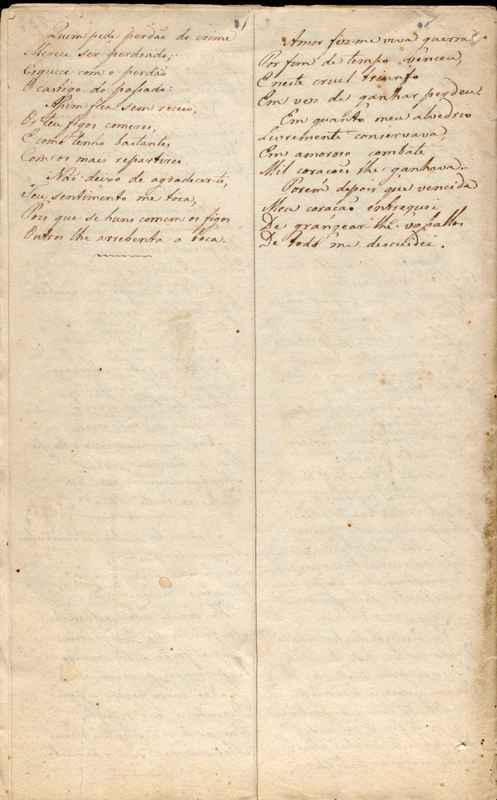 Quem pede perdão do crime
Merece ser perdoado;
Esquece com o perdão
O castigo do passado:
Assim fica sem receio,
Os teu figos comerei,
E como tenho bastantes
Com os mais repartirei
Não deixo de agradecerte,
Teu sentimento me toca,
Pois que se huns comem os figos
Outros lhe arrebenta a boca.
Amor fez-me viva guerra
Por fim de tempo venceu,
E neste cruel triunfo
Em vez de ganhar perdeu:
Em quanto meu alvedrio
Livremente conservava
Em amoroso combate
Mil corações lhe ganhava.
Porem depois que vencida
Meu coração entreguei
De grangear-lhe vassallos
De todo me descuidei.